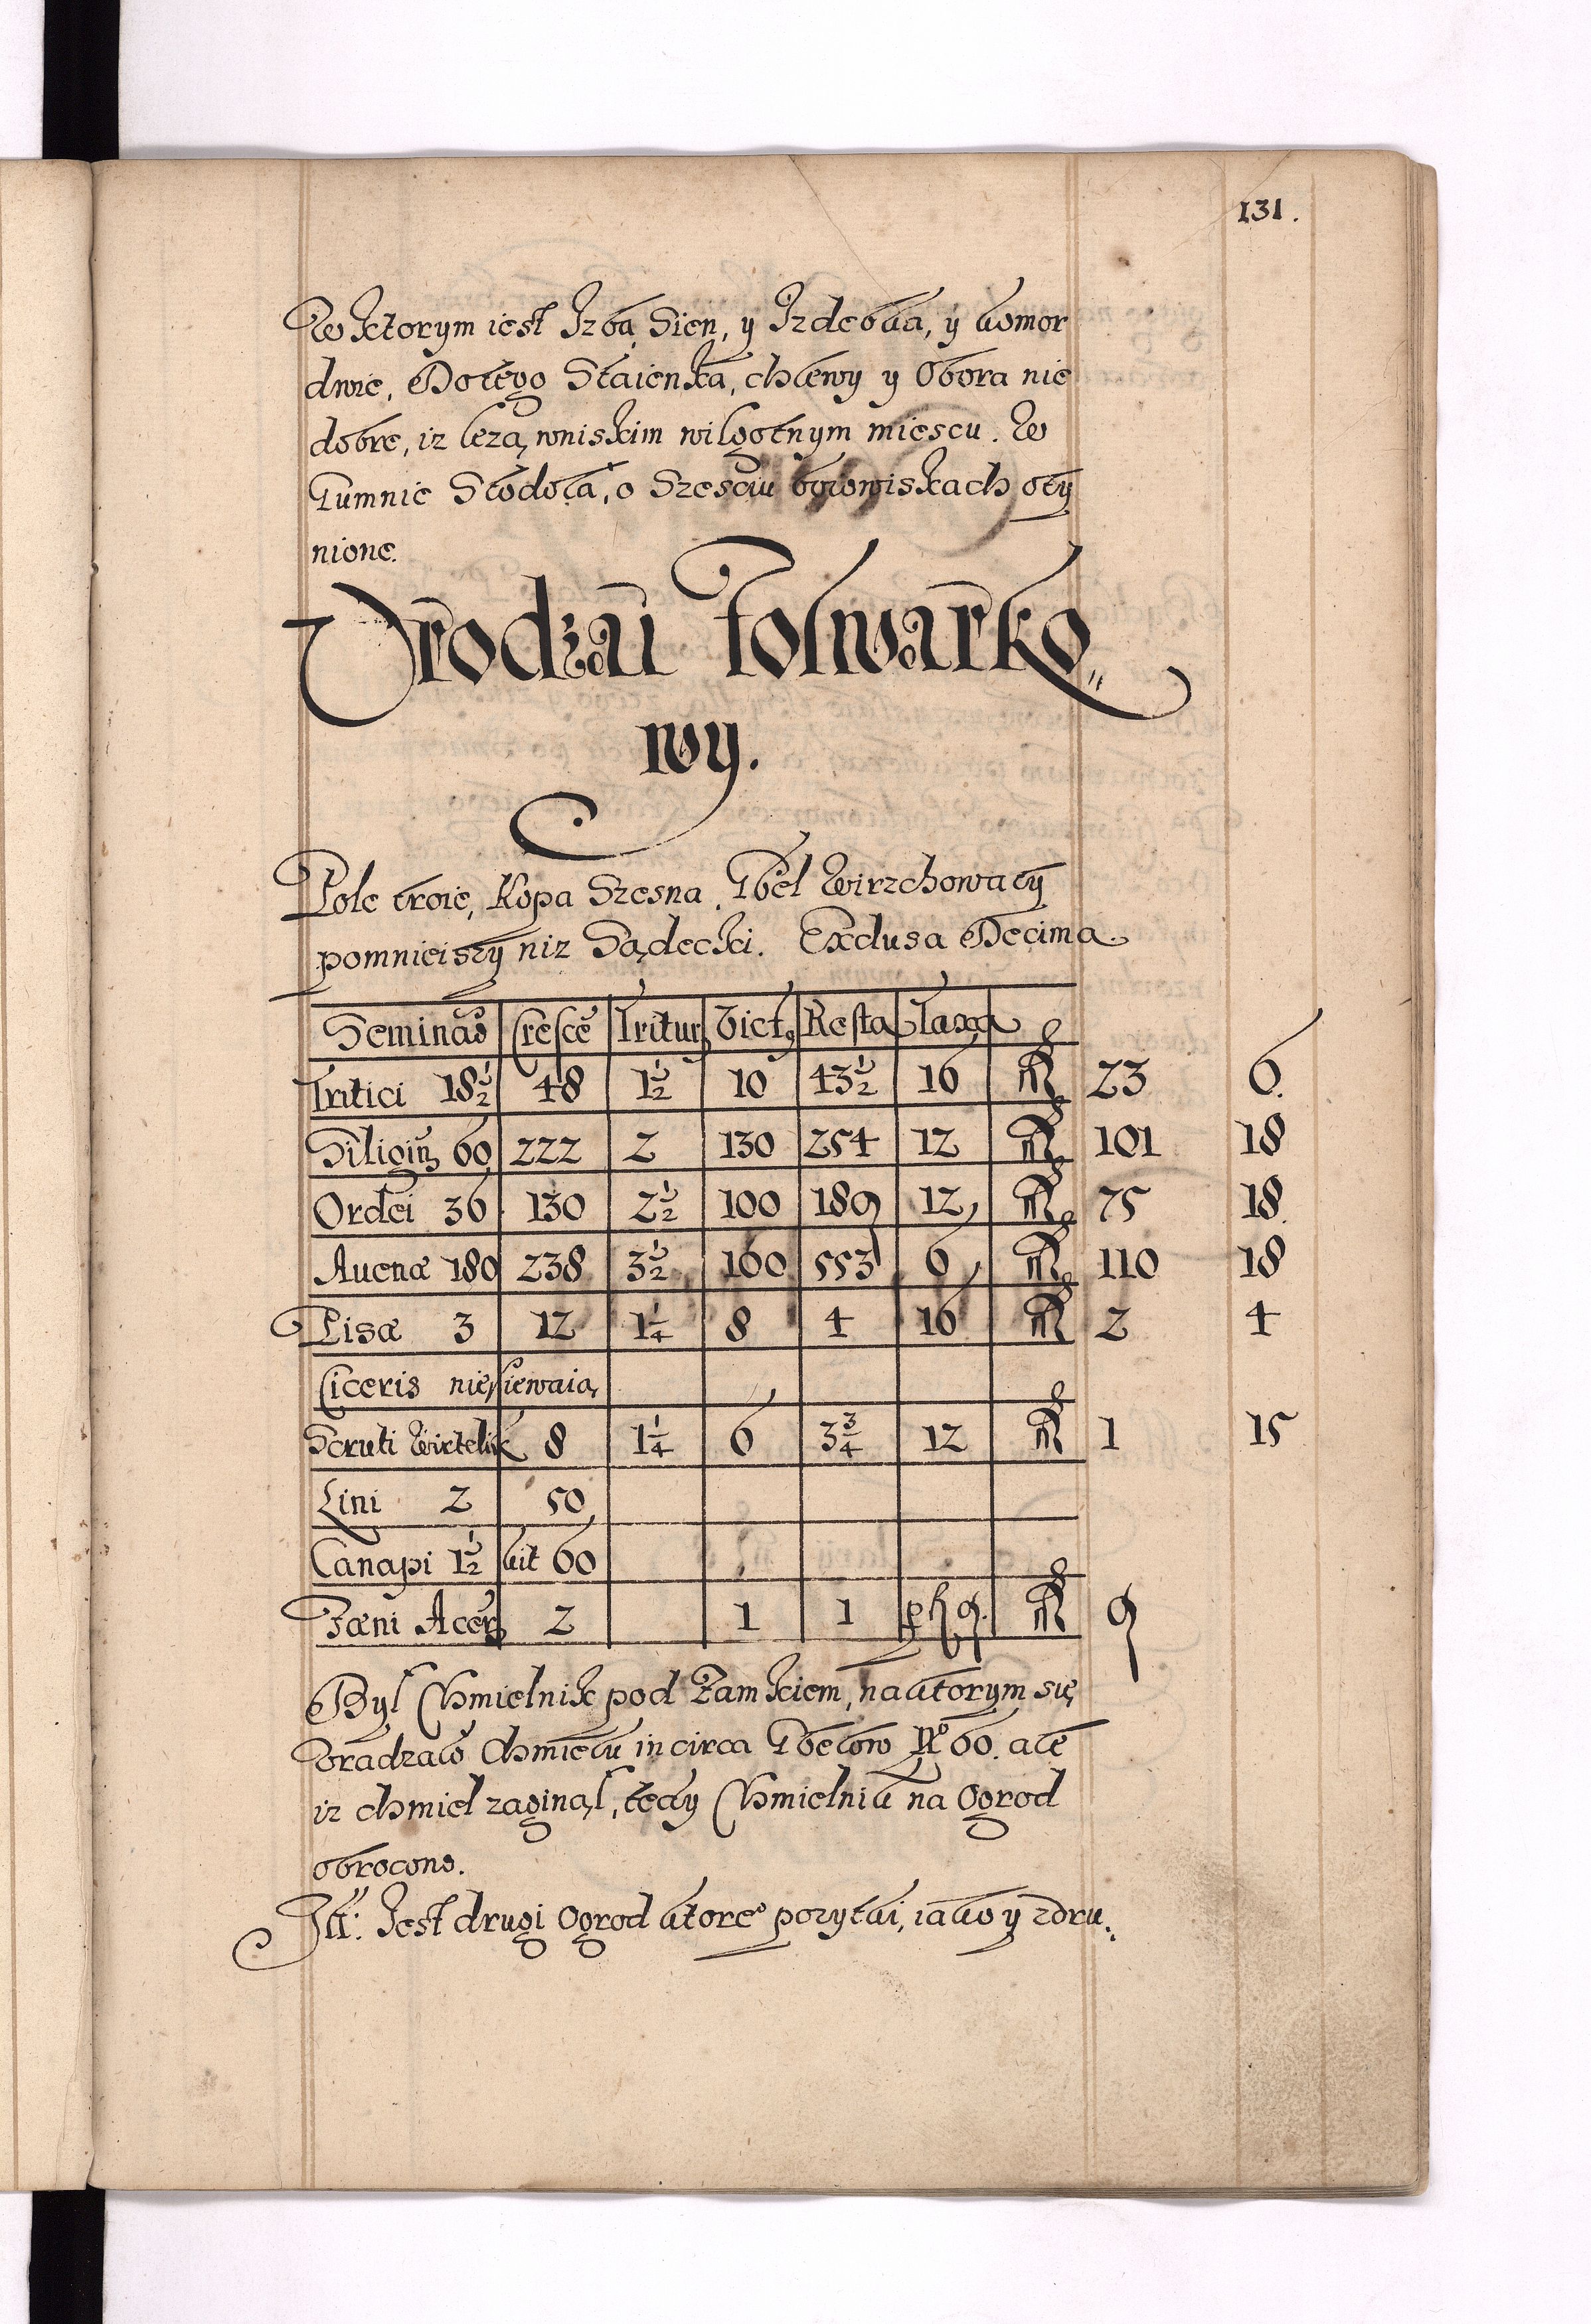 131.
W ktorym iest Izba, Sien, y Izdebka, y komor
dwie, Do tego Staienka, chlewy y Obora nie
dobre, iz leza, w niskim wilgotnym miescu. W
Gumnie Stodoła, o Szesciu boiowiskach oty
nione.
Vrodzai Folwarko„
wy.
Pole troie, Kopa Szesna. Gbel Wirzchowaty
pomnieiszy niz Sądecki. Exclusa Decima.
Seminaō Crescē Tritur Vict9 Resta Taxa
Tritici 18½ 48 1½ 10 43½ 16 23 6.
Siligin 60 222 2 130 254 12 101 18
Ordei 36 130 2½ 100 189 12 75 18.
Auenæ 180 238 3½ 160 553 6 110 18
Pisæ 3 12 1¼ 8 4 16 2 4
Ciceris nie siewaią
Scruti Wirtelik 8 1¼ 6 3¾ 12 1 15
Lini 2 50
Canapi 1½ kit 60
Fæni Acer 2 1 1 9
Był Chmielnik pod Zamkiem, na ktorym się
vradzało Chmielu in circa Gbelow No 60. ale
iz chmiel zaginął, tedy Chmielnik na Ogrod
obrocono.
Itt: Iest drugi Ogrod ktore° pozytki, iako y zdru: